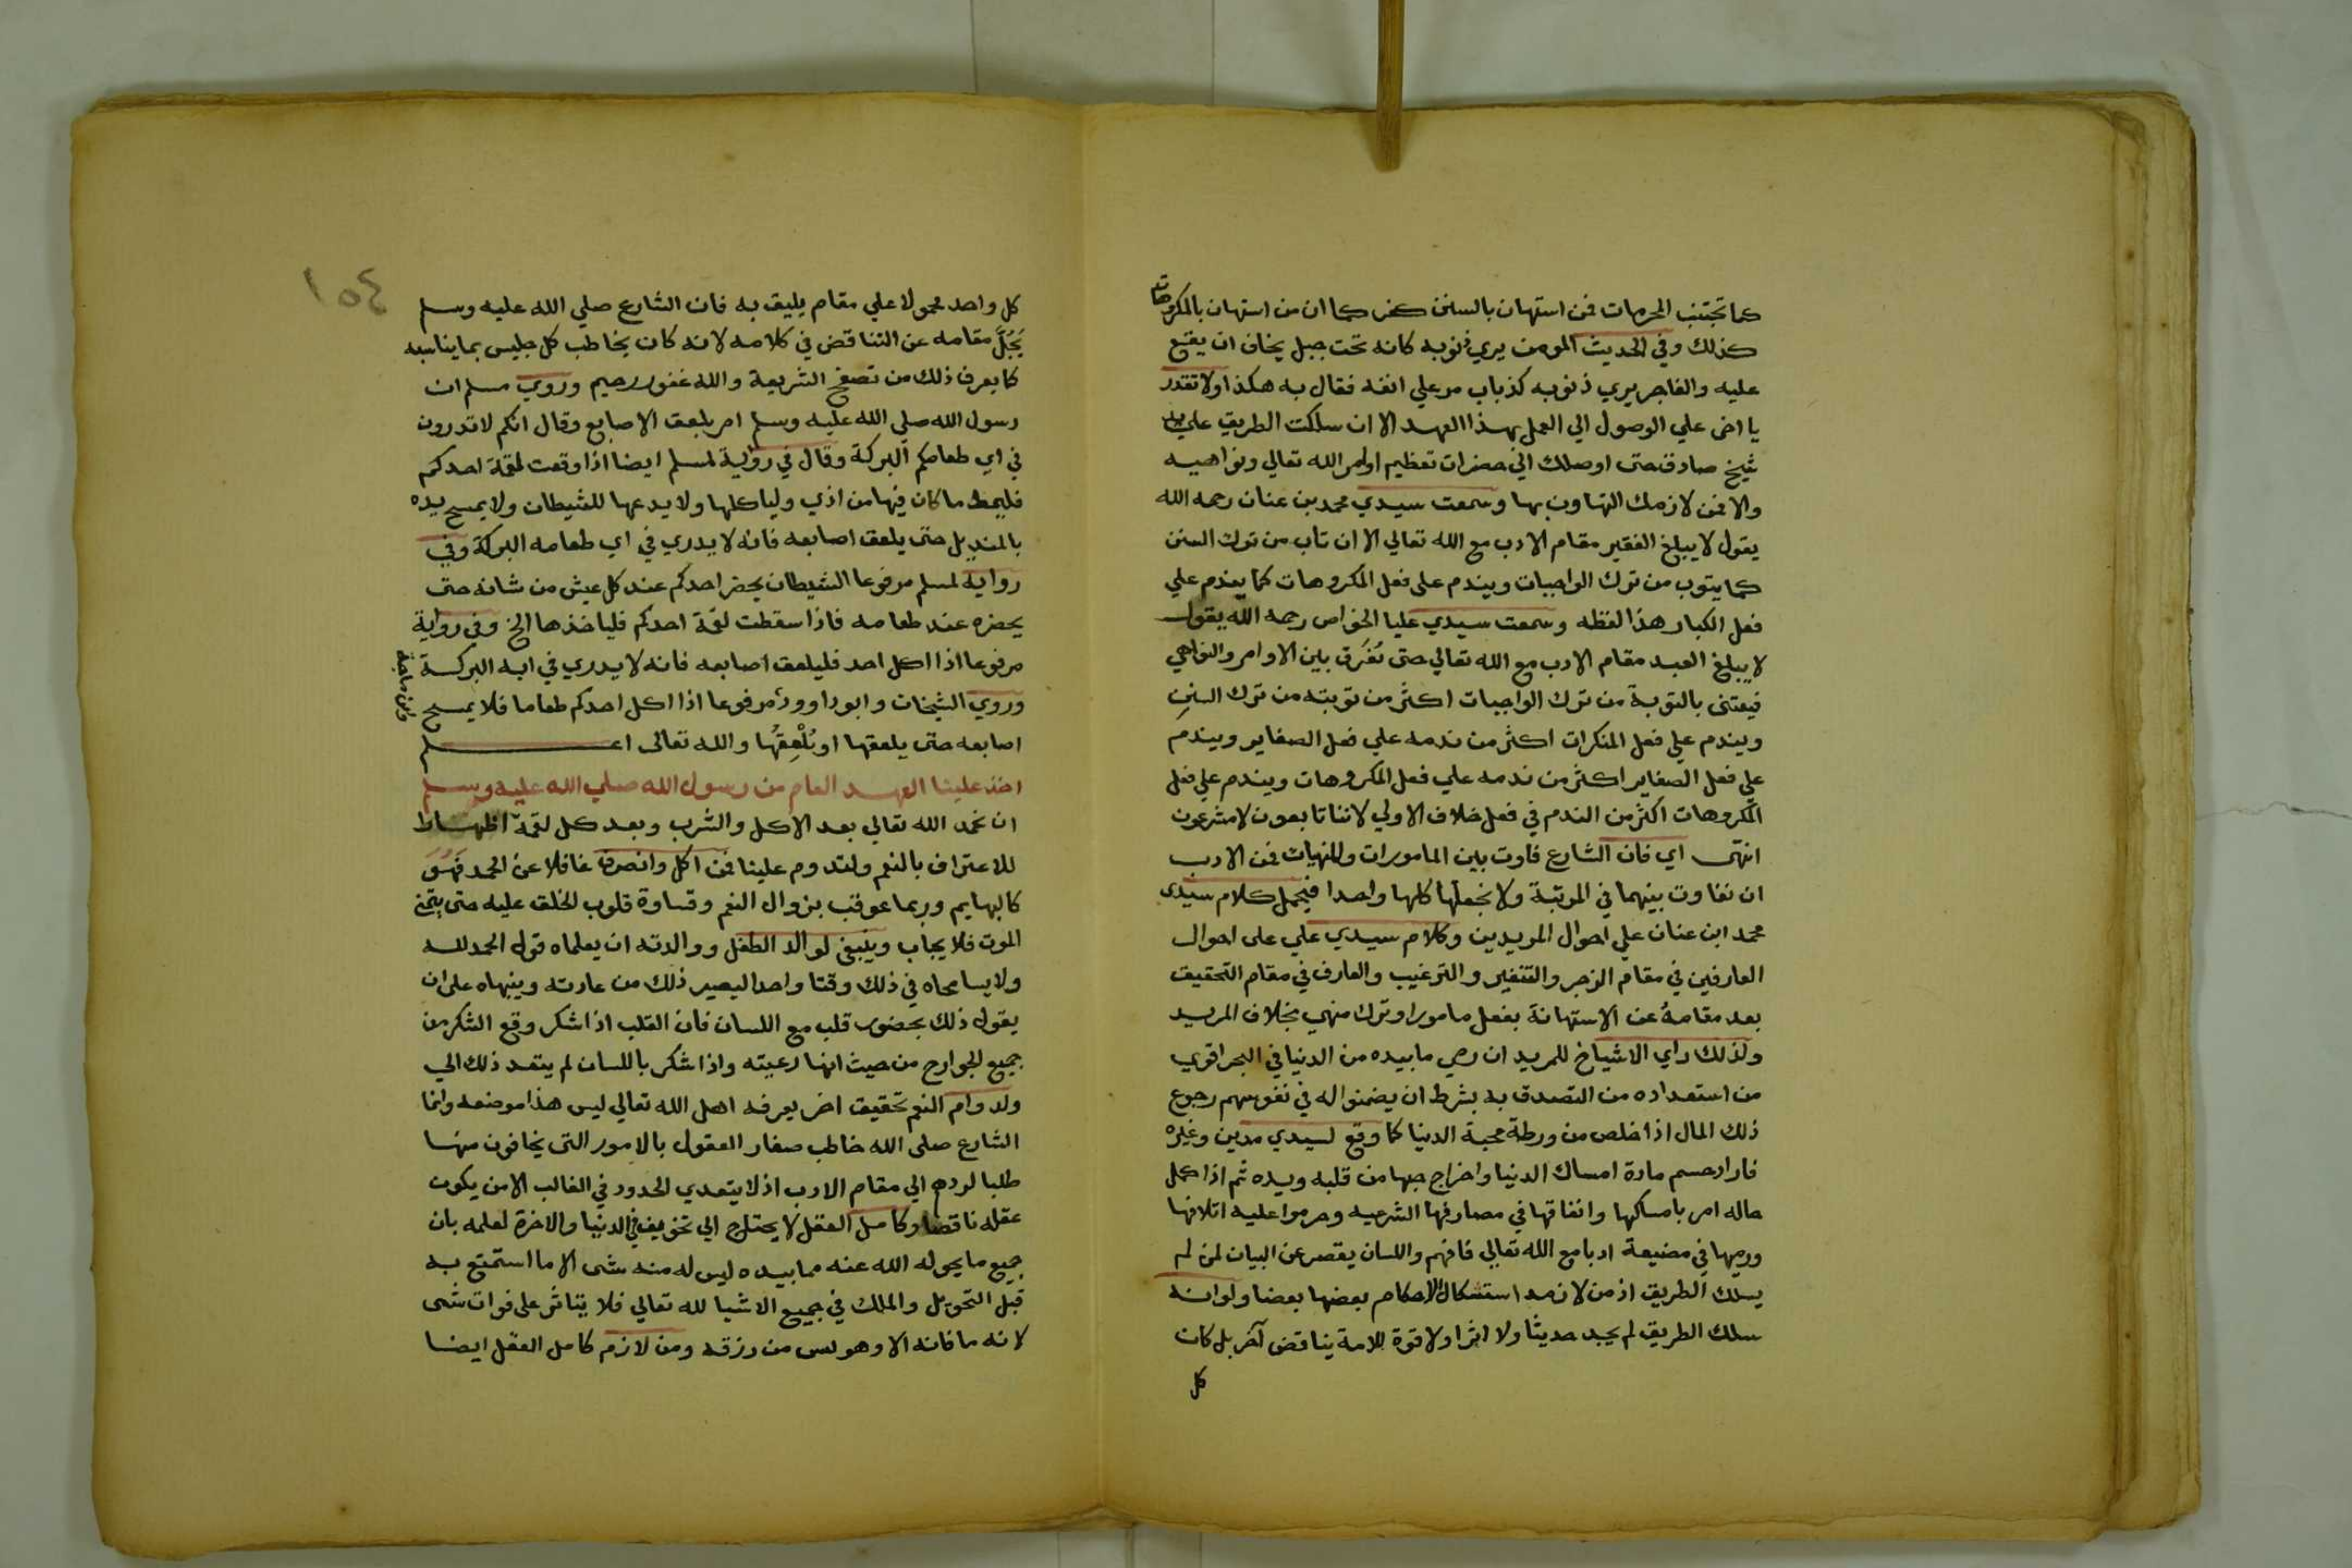 كما تجتنب المحرمات فمن استهان بالسنن كمن كما ان من استهان بالمكروهات
كذلك وفي الحديث المومن يري ذنوبه كانه تحت جبل يخاف ان يقع
عليه والفاجر يري ذنوبه كذباب مر علي انفه فقال به هكذا ولا تقدر
يا اخى علي الوصول الي العمل بهذا العهد الا ان سلكت الطريق علي يد
شيخ صادق حتى اوصلك الي حضرات تعظيم اوامر الله تعالي ونواهيه
والا فمن لازمك التهاون بها وسمعت سيدي محمد بن عنان رحمه الله
يقول لا يبلغ الفقير مقام الادب مع الله تعالي الا ان تاب من ترك السنن
كما يتوب من ترك الواجبات ويندم على فعل المكروهات كما يندم علي
فعل الكبار هذا لفظه وسمعت سيدي عليا الخواص رحمه الله يقول
لا يبلغ العبد مقام الادب مع الله تعالي حتى يفرق بين الاوامر والنواهي
فيعتنى بالتوبة من ترك الواجبات اكثر من توبته من ترك السنن
ويندم علي فعل المنكرات اكثر من ندمه علي فعل الصغاير ويندم
علي فعل الصغاير اكثر من ندمه علي فعل المكروهات ويندم علي فعل
المكروهات اكثر من الندم في فعل خلاف الاولي لاننا تابعون لا مشرعون
انتهى اي فان الشارع فاوت بين المامورات والمنهيات فمن الادب
ان نفاوت بينهما في المرتبة ولا نجعلها كلها واحدا فيحمل كلام سيدى
محمد ابن عنان علي احوال المريدين وكلام سيدي علي على احوال
العارفين في مقام الزجر والتنفير والترغيب والعارف في مقام التحقيق
بعد مقامه عن الاستهانة بفعل مامور او ترك منهي بخلاف المريد
ولذلك راي الاشياخ للمريد ان رمي ما بيده من الدنيا في البحر اقوي
من استعداده من التصدق به بشرط ان يضمنوا له في نفوسهم رجوع
ذلك المال اذا خلص من ورطة محبة الدنيا كما وقع لسيدي مدين وغيره
فاراد حسم مادة امساك الدنيا واخراج حبها من قلبه ويده ثم اذا كمل
حاله امر بامساكها وانفاقها في مصارفها الشرعيه وحرموا عليه اتلافها
ورميها في مضيعة ادبا مع الله تعالي فافهم واللسان يقصر عن البيان لمن لم
يسلك الطريق اذ من لازمه استشكال الاحكام بعضها بعضا ولو انه
سلك الطريق لم يجد حديثا ولا اثرا ولا قوة للامة يناقض آخر بل كان
كل
١٥٤
كل واحد محمولا علي مقام يليق به فان الشارع صلي الله عليه وسلم
يَجُلّ مقامه عن التناقض في كلامه لانه كان يخاطب كل جليس بما يناسبه
كما يعرف ذلك من تصفح الشريعة والله غفور رحيم وروي مسلم ان
رسول الله صلي الله عليه وسلم امر بلعق الاصابع وقال انكم لا تدرون
في اي طعامكم البركة وقال في رواية لمسلم ايضا اذا وقعت لقمة احدكم
فليمط ما كان فيها من اذي ولياكلها ولا يدعها للشيطان ولا يمسح يده
بالمنديل حتى يلعق اصابعه فانه لا يدري في اي طعامه البركة وفي
رواية لمسلم مرفوعا الشيطان يحضر احدكم عند كل عيش من شانه حتى
يحضره عند طعامه فاذا سقطت لقمة احدكم فلياخذها الخ وفي رواية
مرفوعا اذا اكل احد فليلعق اصابعه فانه لا يدري في ايه البركة
وروي الشيخان وابو داوود مرفوعا اذا اكل احدكم طعاما فلا يمسح
وابن ماجة
اصابعه حتى يلعقها او يُلْعِقُها والله تعالى اعلم
اخذ علينا العهد العام من رسول الله صلي الله عليه وسلم
ان نحمد الله تعالي بعد الاكل والشرب وبعد كل لقمة اظهارا
للاعتراف بالنعم ولتدوم علينا فمن اكل وانصرف غافلا عن الحمد فهو
كالبهايم وربما عوقب بزوال النعم وقساوة قلوب الخلق عليه حتى يتمنى
الموت فلا يجاب وينبغى لوالد الطفل ووالدته ان يعلماه قول الحمد لله
ولا يسامحاه في ذلك وقتا واحدا ليصير ذلك من عادته وينبهاه على ان
يقول ذلك بحضور قلب مع اللسان فان القلب اذا شكر وقع الشكر من
جميع الجوارح من حيث انها رعيته واذا شكر باللسان لم يتعد ذلك الي
ولدوام النعم تحقيق اخر يعرفه اهل الله تعالي ليس هذا موضعه وانما
الشارع صلى الله خاطب صغار العقول بالامور التى يخافون منها
طلبا لردهم الي مقام الادب اذ لا يتعدي الحدود في الغالب الا من يكون
عقله ناقصا وكامل العقل لا يحتاج الي تخويف في الدنيا والاخرة لعلمه بان
جميع ما يحوله الله عنه مما بيده ليس له منه شى الا ما استمتع به
قبل التحويل والملك في جميع الاشيا لله تعالي فلا يتاثر على فوات شى
لانه ما فاته الا وهو ليس من رزقه ومن لازم كامل العقل ايضا